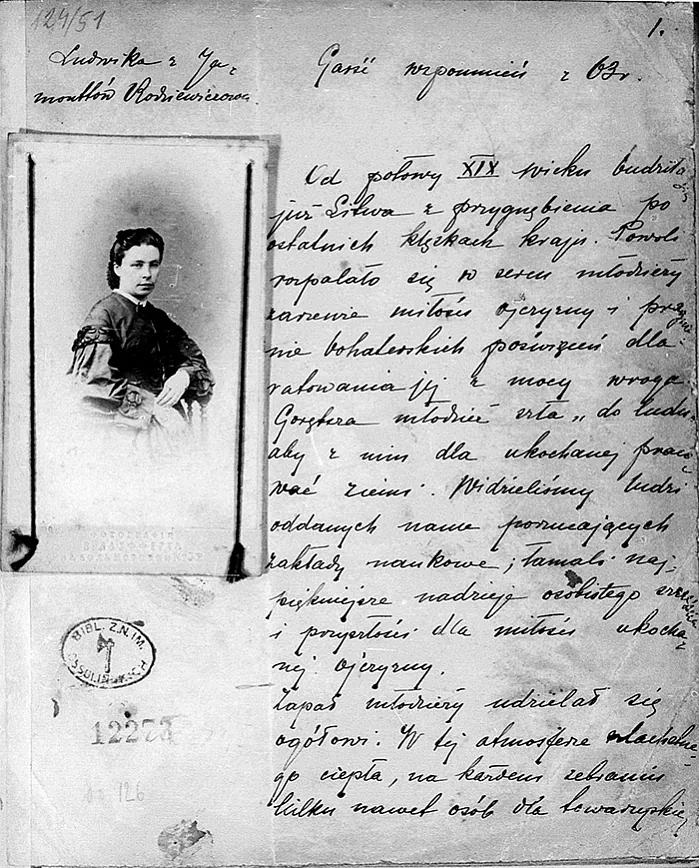 124/51
1.
Ludwika z Ja-
monttów Rodziewiczowa
Garść wspomnień z 63 r.
Od połowy XIX wieku budziła
się
już Litwa z przygnębienia po
ostatnich klęskach kraju. Powoli
rozpalało się w sercu młodzieży
zarzewie miłości ojczyzny i prag-
nie bohaterskich poświęceń dla
ratowania jej z mocy wroga.
Gorętsza młodzież szła „do ludu
aby z nim dla ukochanej praco-
wać ziemi. Widzieliśmy ludzi
oddanych nauce porzucających
zakłady naukowe; łamali naj-
piękniejsze nadzieje osobistego szczęścia
i przyszłości dla miłości ukocha-
nej ojczyzny.
Zapał młodzieży udzielał się
ogółowi. W tej atmosferze szlachetne-
go ciepła, na każdem zebraniu
kilku nawet osób dla towarzyskiej
BIBL. Z. N. IM.
OSSOLIŃSKICH
12273
126